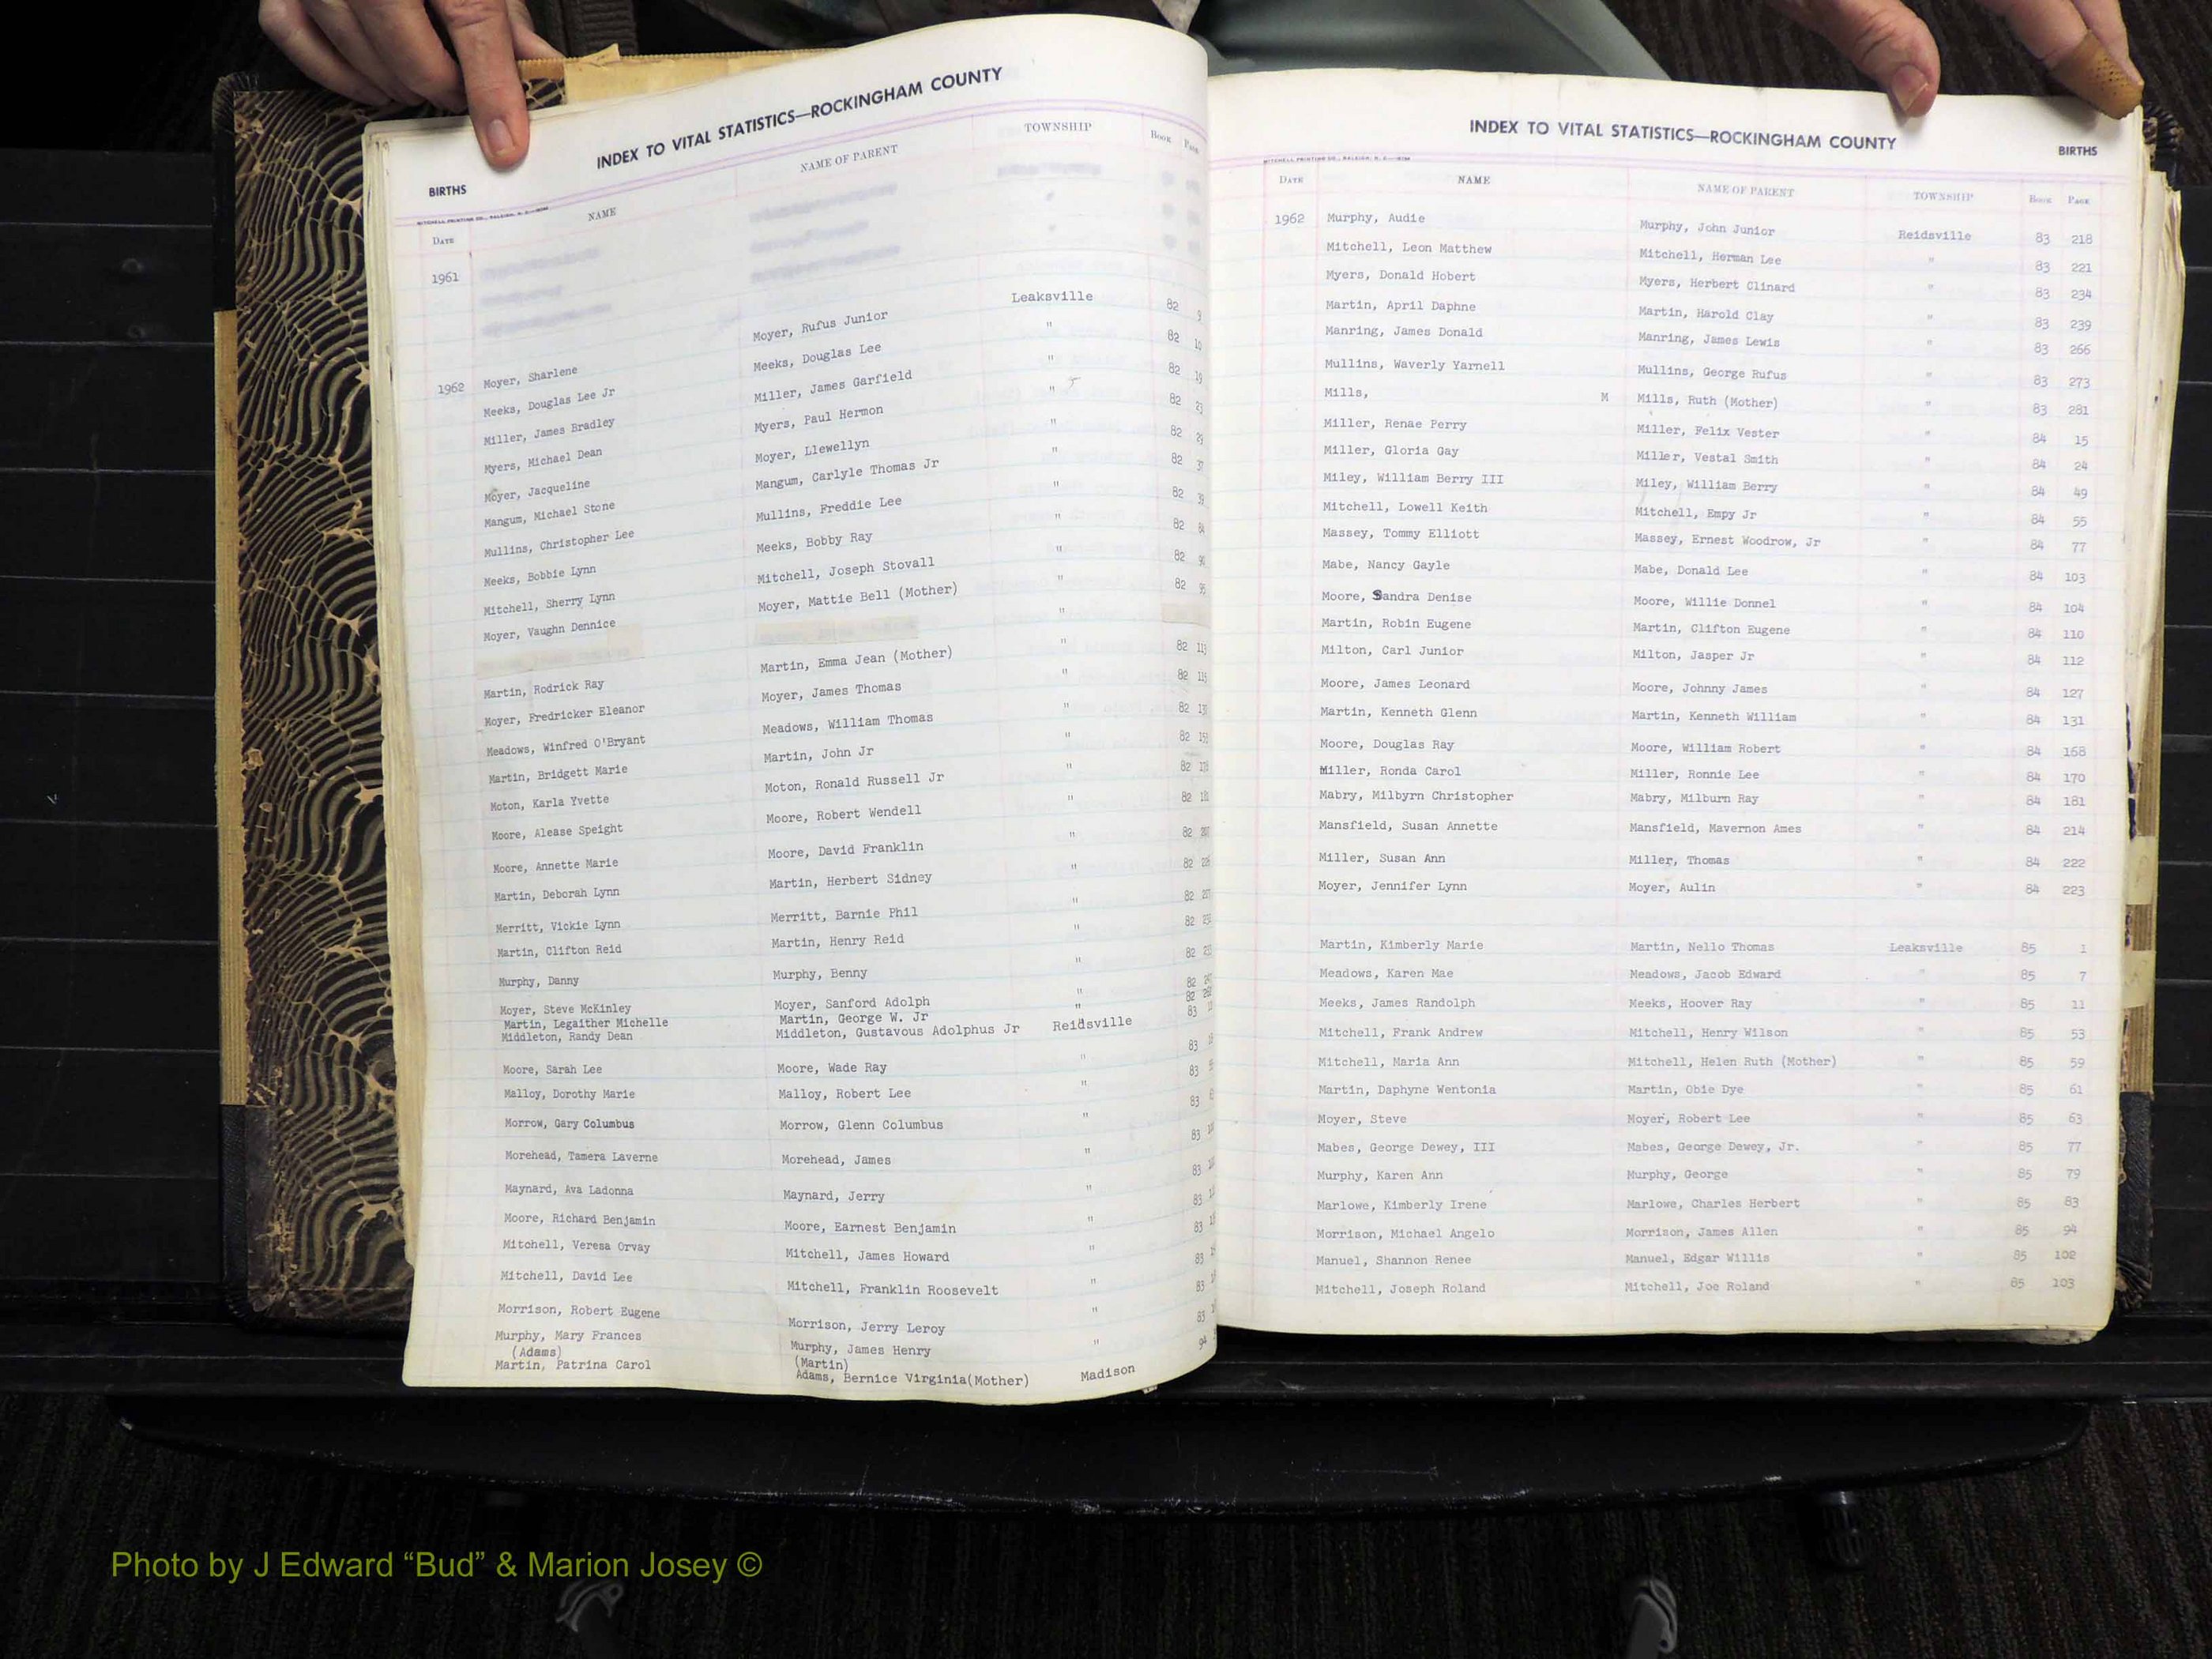 INDEX TO VITAL STATISTICS—ROCKINGHAM COUNTY
BIRTHS
MITCHELL PRINTING CO., RALEIGH, N. C.
DATE NAME NAME OF PARENT TOWNSHIP BOOK PAGE
1961
1962 Moyer, Sharlene Moyer, Rufus Junior Leaksville 82 9
Meeks, Douglas Lee Jr Meeks, Douglas Lee " 82 10
Miller, James Bradley Miller, James Garfield " 82 19
Myers, Michael Dean Myers, Paul Hermon " 82 23
Moyer, Jacqueline Moyer, Llewellyn " 82
Mangum, Michael Stone Mangum, Carlyle Thomas Jr " 82 37
Mullins, Christopher Lee Mullins, Freddie Lee " 82 39
Meeks, Bobbie Lynn Meeks, Bobby Ray " 82
Mitchell, Sherry Lynn Mitchell, Joseph Stovall " 82
Moyer, Vaughn Dennice Moyer, Mattie Bell (Mother) " 82
"
Martin, Rodrick Ray Martin, Emma Jean (Mother) " 82
Moyer, Fredricker Eleanor Moyer, James Thomas " 82
Meadows, Winfred O'Bryant Meadows, William Thomas " 82
Martin, Bridgett Marie Martin, John Jr " 82
Moton, Karla Yvette Moton, Ronald Russell Jr " 82
Moore, Alease Speight Moore, Robert Wendell " 82
Moore, Annette Marie Moore, David Franklin " 82
Martin, Deborah Lynn Martin, Herbert Sidney " 82
Merritt, Vickie Lynn Merritt, Barnie Phil " 82
Martin, Clifton Reid Martin, Henry Reid " 82
Murphy, Danny Murphy, Benny " 82
Moyer, Steve McKinley Moyer, Sanford Adolph " 82
Martin, Legaither Michelle Martin, George W. Jr " 82
Middleton, Randy Dean Middleton, Gustavous Adolphus Jr Reidsville 83
Moore, Sarah Lee Moore, Wade Ray " 83
Malloy, Dorothy Marie Malloy, Robert Lee " 83
Morrow, Gary Columbus Morrow, Glenn Columbus " 83
Morehead, Tamera Laverne Morehead, James " 83
Maynard, Ava Ladonna Maynard, Jerry " 83
Moore, Richard Benjamin Moore, Earnest Benjamin " 83
Mitchell, Veresa Orvay Mitchell, James Howard " 83
Mitchell, David Lee Mitchell, Franklin Roosevelt " 83
Morrison, Robert Eugene Morrison, Jerry Leroy " 83
Murphy, Mary Frances Murphy, James Henry " 83
(Adams) (Martin)
Martin, Patrina Carol Adams, Bernice Virginia(Mother) Madison 94
INDEX TO VITAL STATISTICS—ROCKINGHAM COUNTY
BIRTHS
MITCHELL PRINTING CO., RALEIGH, N. C.
DATE NAME NAME OF PARENT TOWNSHIP BOOK PAGE
1962 Murphy, Audie Murphy, John Junior Reidsville 83 218
Mitchell, Leon Matthew Mitchell, Herman Lee " 83 221
Myers, Donald Hobert Myers, Herbert Clinard " 83 234
Martin, April Daphne Martin, Harold Clay " 83 239
Manring, James Donald Manring, James Lewis " 83 266
Mullins, Waverly Yarnell Mullins, George Rufus " 83 273
Mills, M Mills, Ruth (Mother) " 83 281
Miller, Renae Perry Miller, Felix Vester " 84 15
Miller, Gloria Gay Miller, Vestal Smith " 84 24
Miley, William Berry III Miley, William Berry " 84 49
Mitchell, Lowell Keith Mitchell, Empy Jr " 84 55
Massey, Tommy Elliott Massey, Ernest Woodrow, Jr " 84 77
Mabe, Nancy Gayle Mabe, Donald Lee " 84 103
Moore, Sandra Denise Moore, Willie Donnel " 84 104
Martin, Robin Eugene Martin, Clifton Eugene " 84 110
Milton, Carl Junior Milton, Jasper Jr " 84 112
Moore, James Leonard Moore, Johnny James " 84 127
Martin, Kenneth Glenn Martin, Kenneth William " 84 131
Moore, Douglas Ray Moore, William Robert " 84 168
Miller, Ronda Carol Miller, Ronnie Lee " 84 170
Mabry, Milbyrn Christopher Mabry, Milburn Ray " 84 181
Mansfield, Susan Annette Mansfield, Mavernon Ames " 84 214
Miller, Susan Ann Miller, Thomas " 84 222
Moyer, Jennifer Lynn Moyer, Aulin " 84 223
Martin, Kimberly Marie Martin, Nello Thomas Leaksville 85 1
Meadows, Karen Mae Meadows, Jacob Edward " 85 7
Meeks, James Randolph Meeks, Hoover Ray " 85 11
Mitchell, Frank Andrew Mitchell, Henry Wilson " 85 53
Mitchell, Maria Ann Mitchell, Helen Ruth (Mother) " 85 59
Martin, Daphyne Wentonia Martin, Obie Dye " 85 61
Moyer, Steve Moyer, Robert Lee " 85 63
Mabes, George Dewey, III Mabes, George Dewey, Jr. " 85 77
Murphy, Karen Ann Murphy, George " 85 79
Marlowe, Kimberly Irene Marlowe, Charles Herbert " 85 83
Morrison, Michael Angelo Morrison, James Allen " 85 94
Manuel, Shannon Renee Manuel, Edgar Willis " 85 102
Mitchell, Joseph Roland Mitchell, Joe Roland " 85 103
Photo by J Edward “Bud” & Marion Josey ©